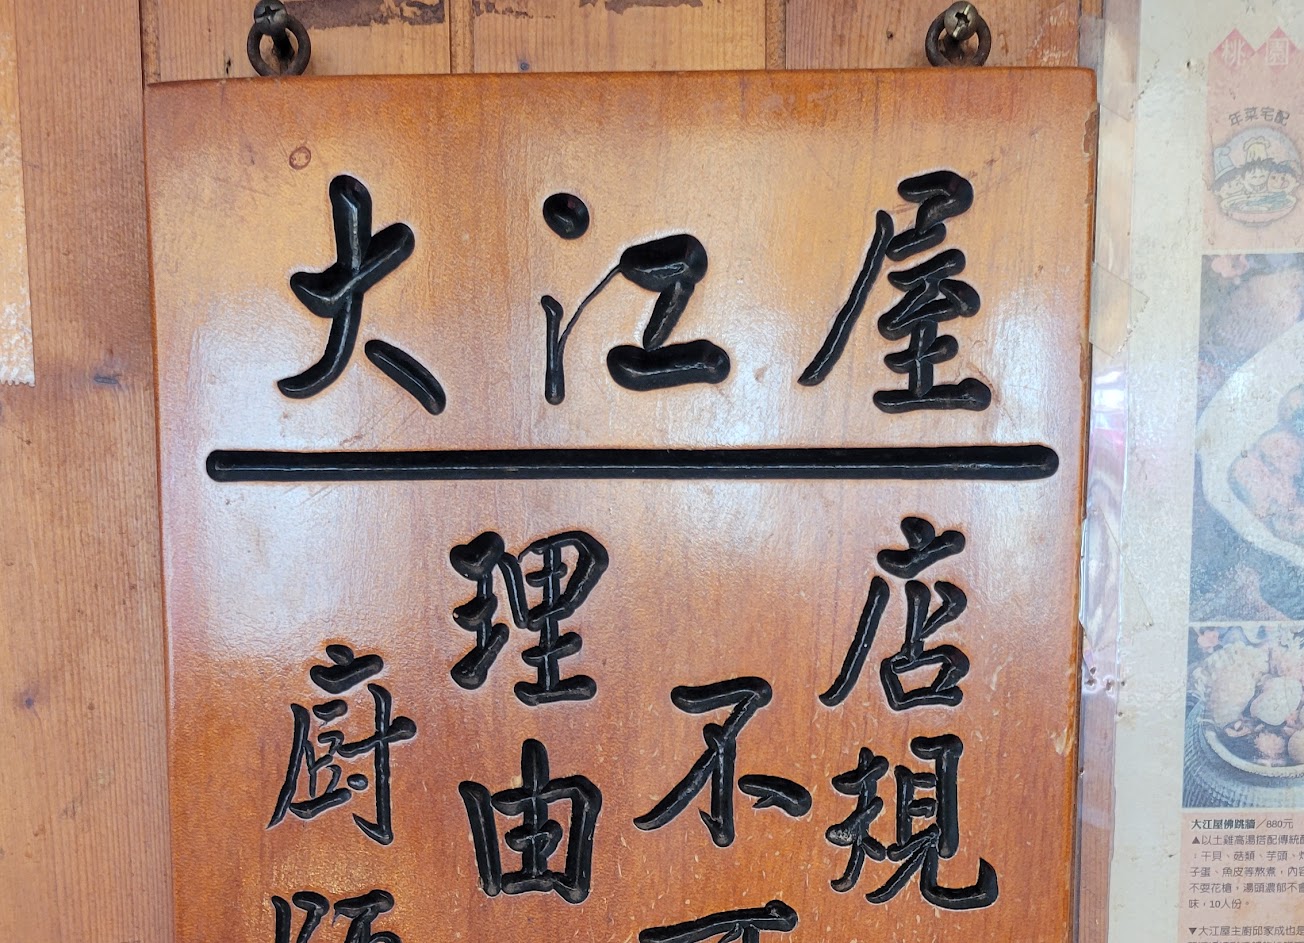 大江屋
店規
不
理由
廚師
桃園
年菜宅配
大江屋佛跳牆／880元
▲以土雞高湯搭配傳統
干貝、菇類、芋頭、
子蛋、魚皮等熬煮，內容
不耍花槍，湯頭濃郁不會
味，10人份。
▼大江屋主廚邱家成也是